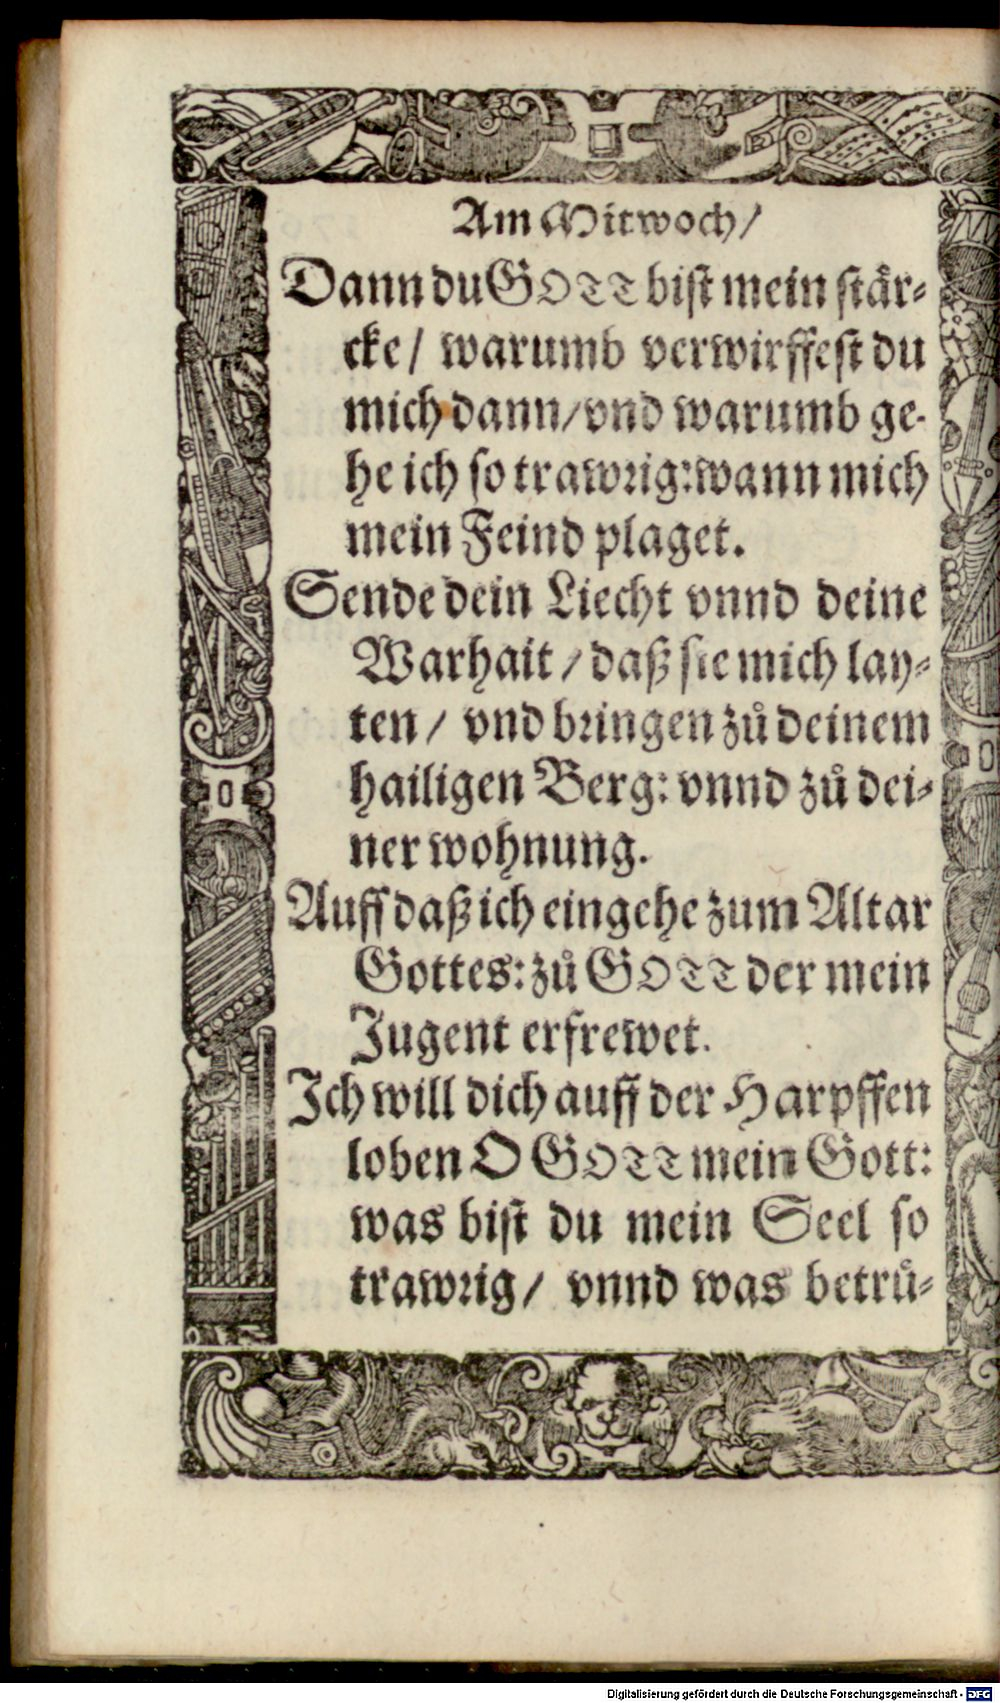 Am Mitwoch/
Dann du GOTT bist mein stär-
cke/ warumb verwirffest du
mich dann/vnd warumb ge-
he ich so trawrig: wann mich
mein Feind plaget.
Sende dein Liecht vnnd deine
Warhait/ daß sie mich lay-
ten/ vnd bringen zů deinem
hailigen Berg: vnnd zů dei-
ner wohnung.
Auff daß ich eingehe zum Altar
Gottes: zů GOTT der mein
Jugent erfrewet.
Ich will dich auff der Harpffen
loben O GOTT mein Gott:
was bist du mein Seel so
trawrig/ vnnd was betrů-
Digitalisierung gefördert durch die Deutsche Forschungsgemeinschaft - DFG